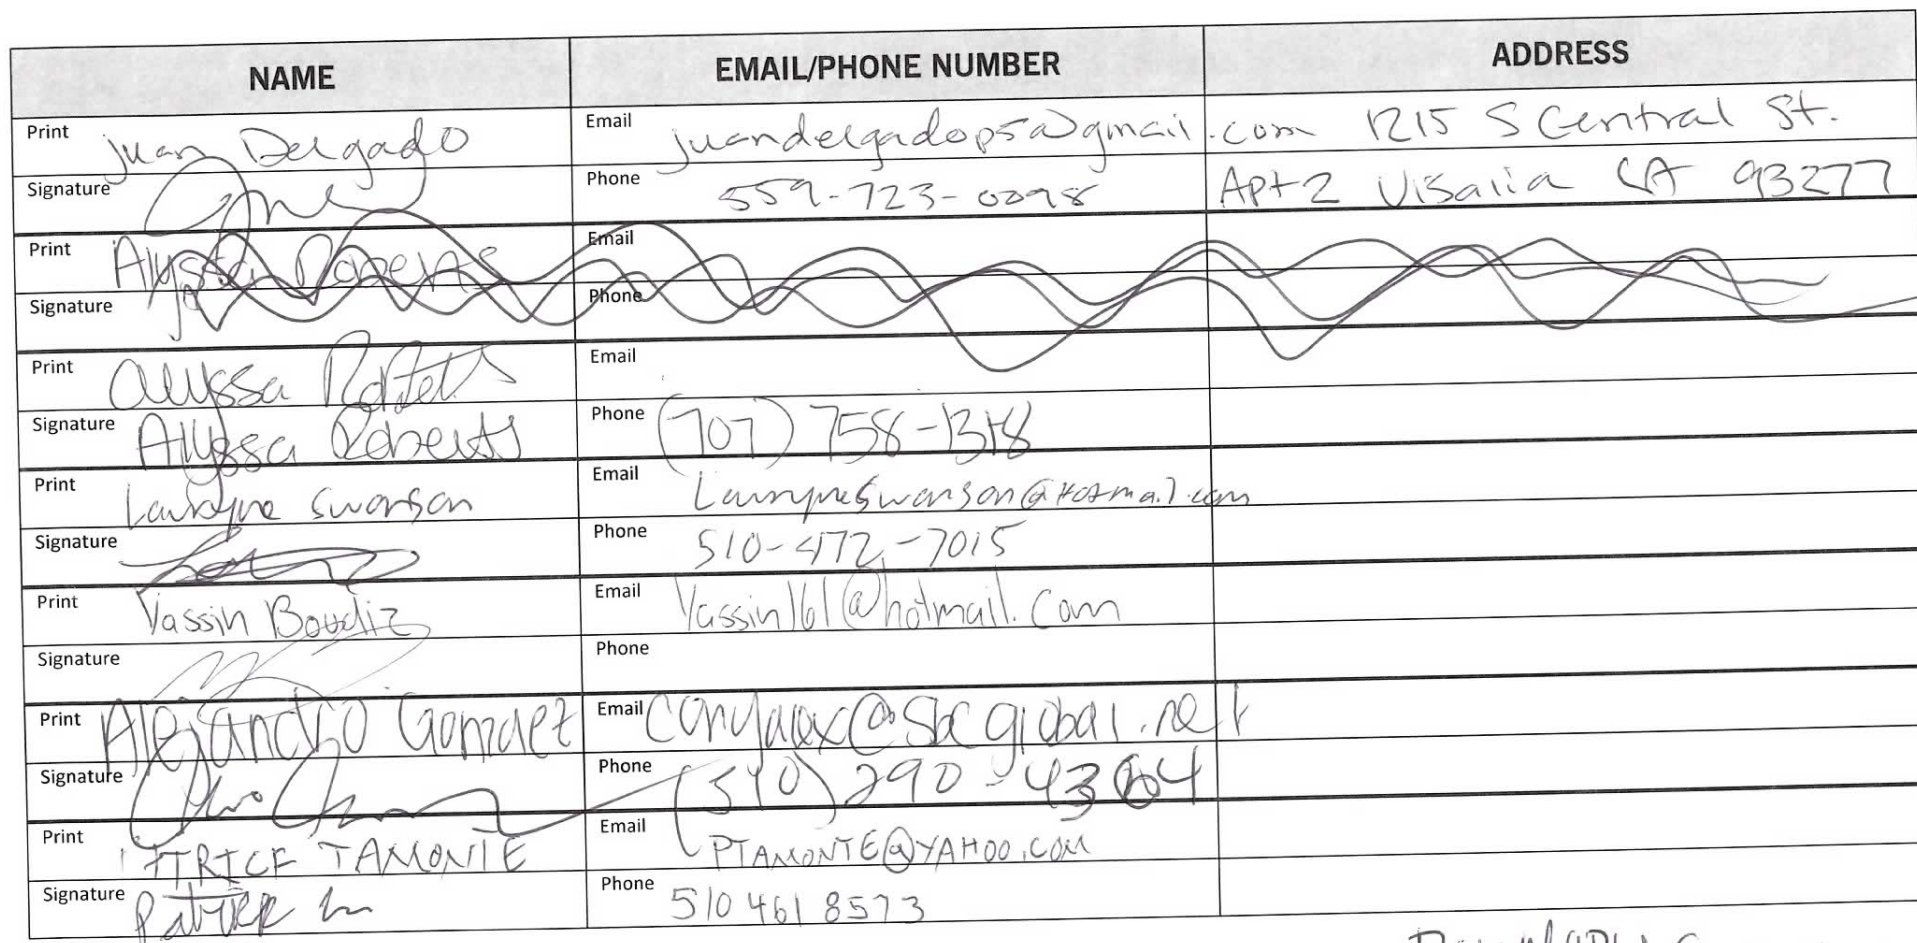 NAME EMAIL/PHONE NUMBER ADDRESS
Print Juan Delgado Email juandelgadop5@gmail.com 1215 S Central St.
Signature Phone 559-723-0298 Apt 2 Visalia CA 93277
Print Alyssa Roberts Email
Signature Phone
Print Alyssa Roberts Email
Signature Alyssa Roberts Phone (707) 758-1318
Print Laurayne Swanson Email LaurayneSwanson@Hotmail.com
Signature Phone 510-472-7015
Print Yassin Boudiz Email Yassin161@hotmail.com
Signature Phone
Print Alejandro Gonzalez Email @sbcglobal.net
Signature Phone (510) 290-4364
Print TAMONTE Email PTAMONTE@YAHOO.COM
Signature Patrick Phone 510 461 8573